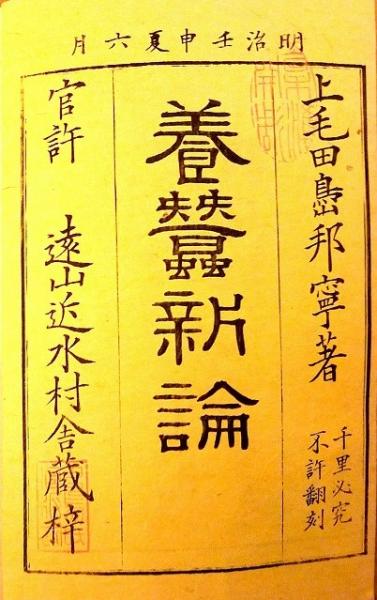 明治壬申夏六月
上毛田嶌邦寧著
千里必究
不許翻刻
養蠶新論
官許 遠山近水村舎蔵梓